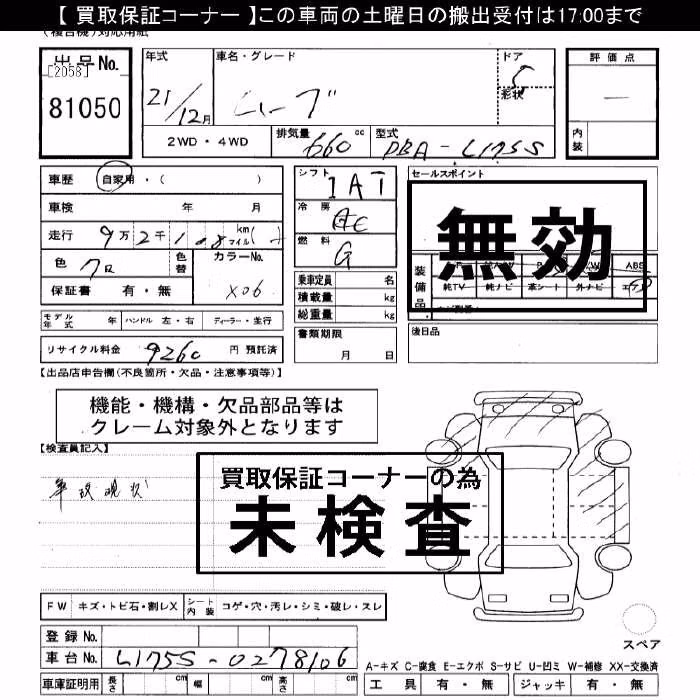 【 買取保証コーナー 】この車両の土曜日の搬出受付は17:00まで
(複合機)対応用紙
出品No. 年式 車名・グレード ドア 評価点
[2058] 形状
81050 21/12月 ムーブ 5 —
2WD・4WD 排気量 660 cc 型式 DBA-L175S 内装
車歴 自家用・( ) シフト IAT セールスポイント
車検 年 月 冷房 AC 無効
走行 9万2千1 km マイル 燃料 G
色 クロ 色替 カラーNo. X06
装備品 ABS
純TV 純ナビ 革シート 外ナビ エアB
保証書 有・無 乗車定員 名
積載量 kg
総重量 kg
モデル年式 年 ハンドル 左・右 ディーラー・並行 書類期限 後日品
リサイクル料金 9260 円 預託済 月 日
【出品店申告欄(不良箇所・欠品・注意事項等)】
機能・機構・欠品部品等は
クレーム対象外となります
【検査員記入】
買取保証コーナーの為
未検査
現状
FW キズ・トビ石・割レX シート内装 コゲ・穴・汚レ・シミ・破レ・スレ
登録No.
スペア
車台No. L175S-0278106
A-キズ C-腐食 E-エクボ S-サビ U-凹ミ W-補修 XX-交換済
車庫証明用 長さ cm 幅 cm 高さ cm 工具 有・無 ジャッキ 有・無